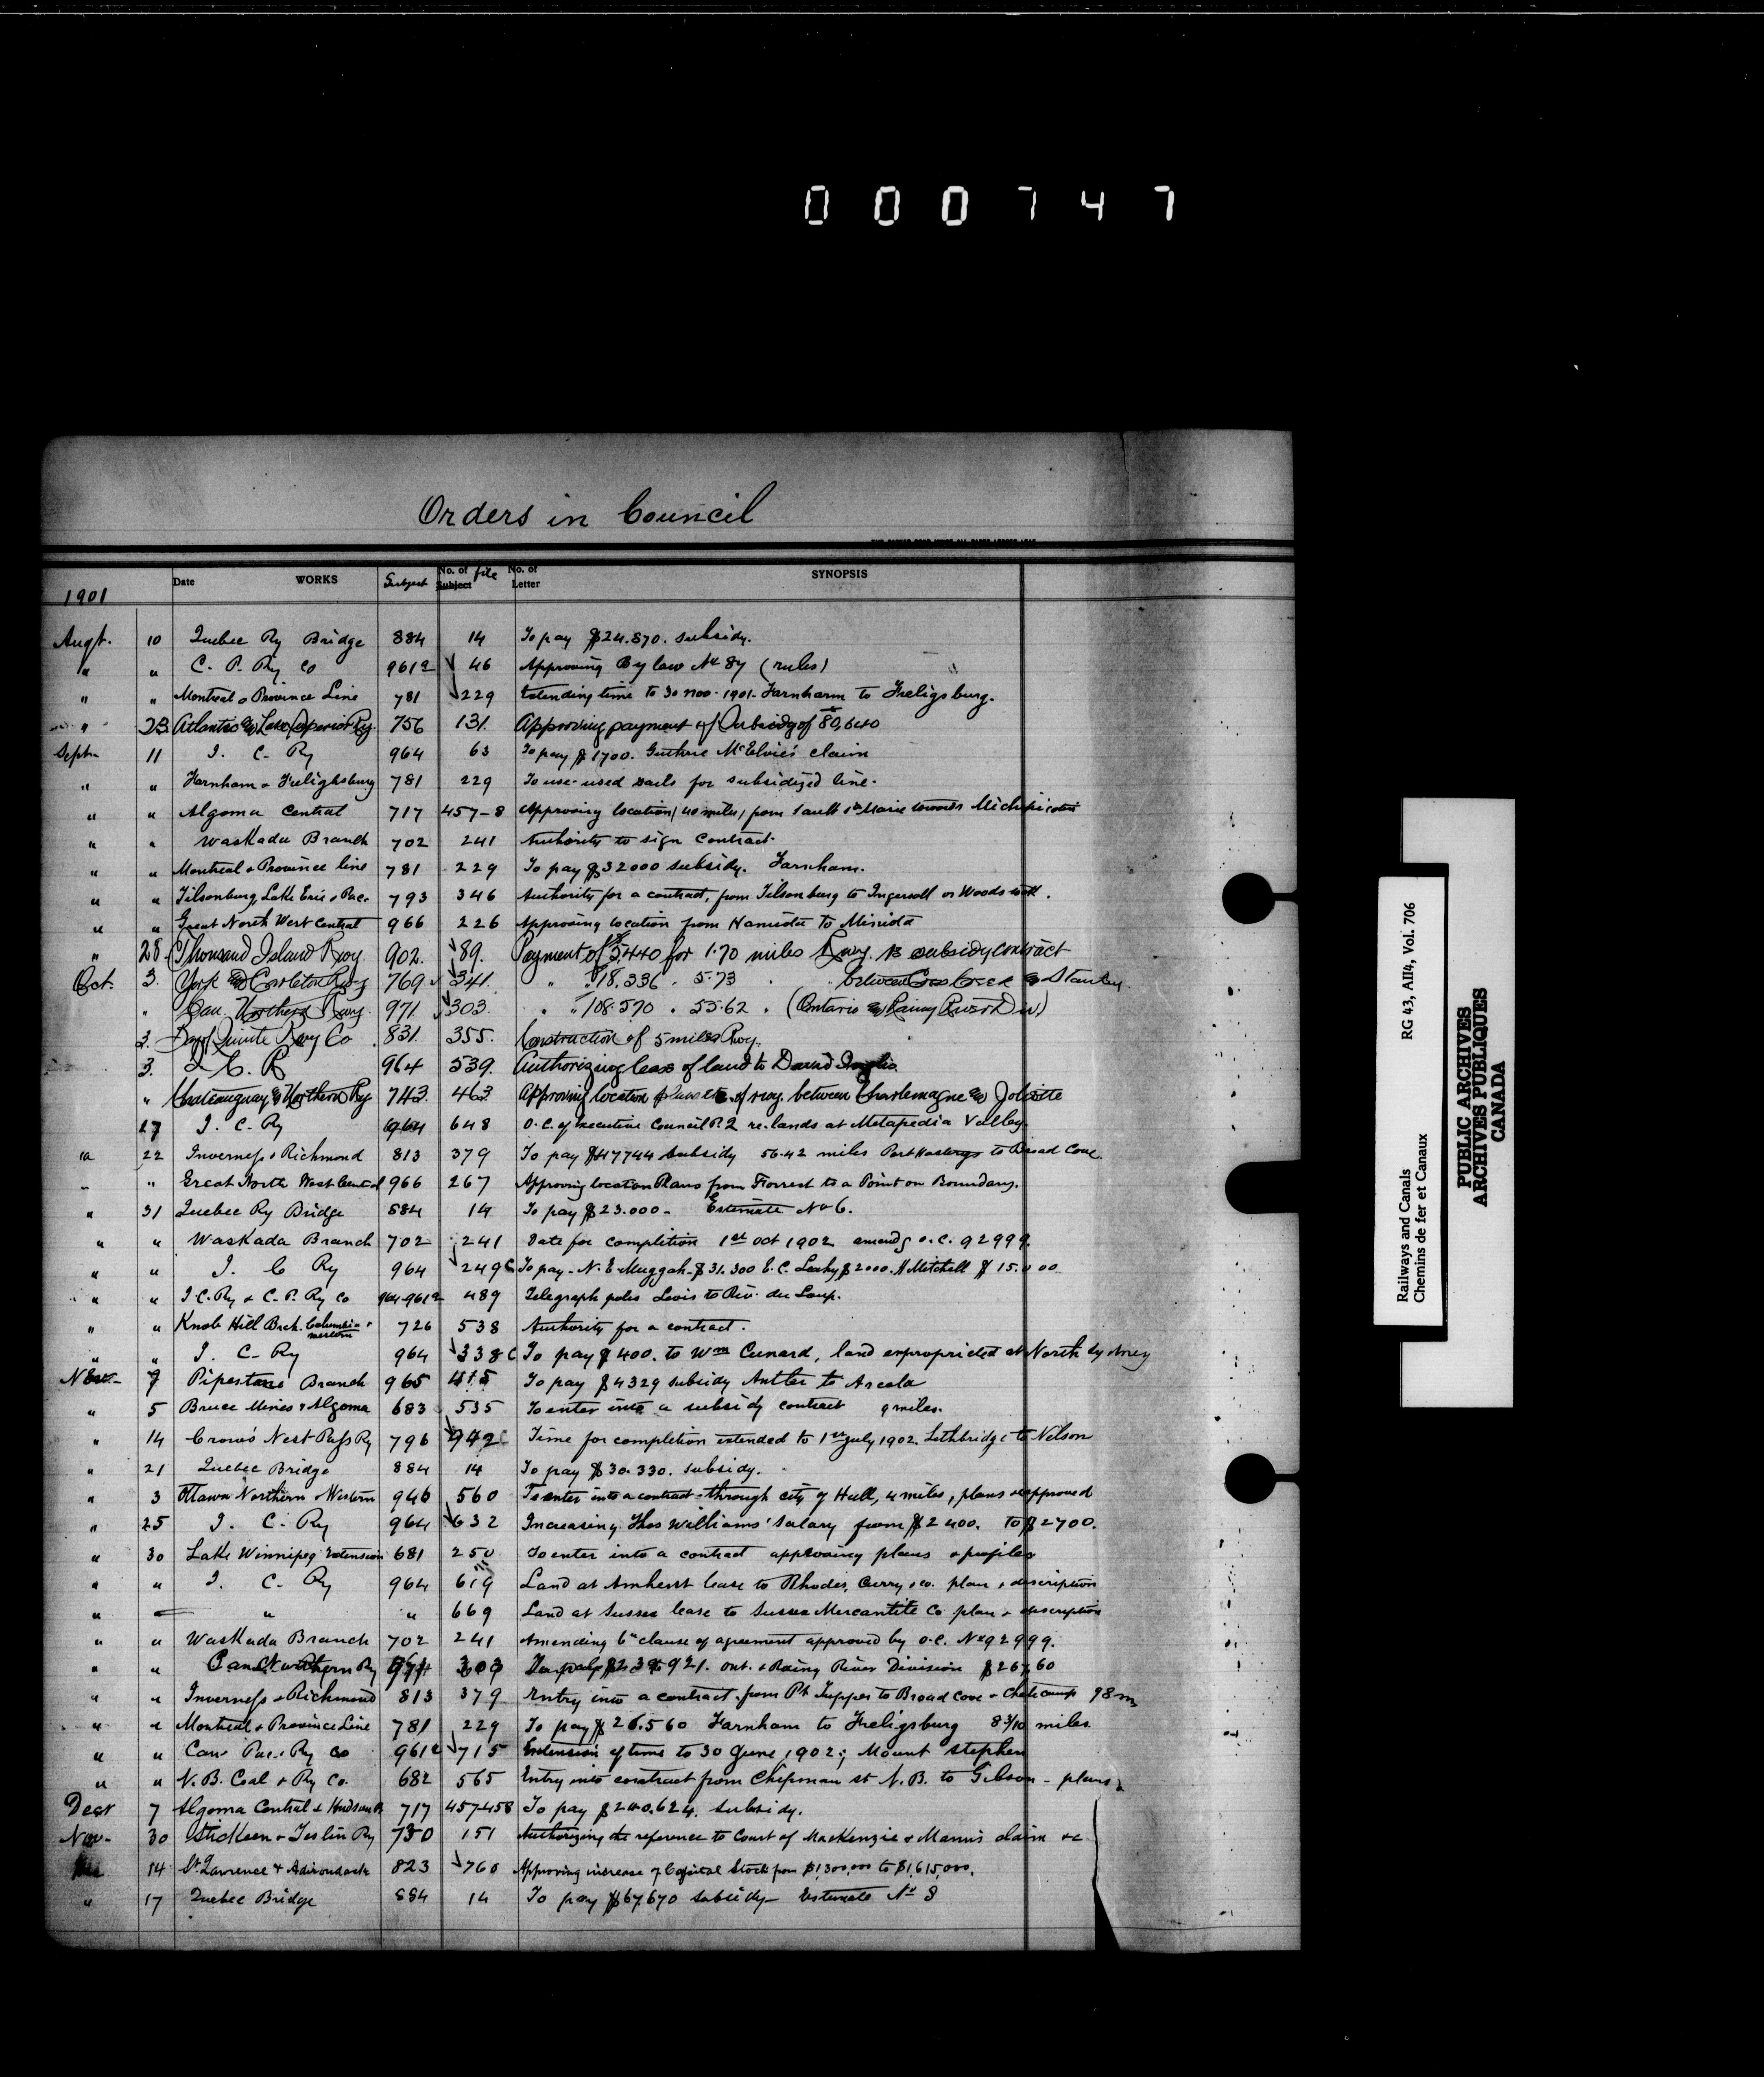 000747
Orders in Council
Date WORKS Subject No. of Subject file No. of Letter SYNOPSIS
1901
Augt. 10 Quebec Ry Bridge 884 14 To pay $24.870. subsidy.
" " C. P. Ry Co 9612 46 Approving By law No 87 (rules)
" " Montreal & Province Line 781 229 Extending time to 30 Nov. 1901- Farnham to Freligsburg.
" 23. Atlantic & Lake Superior Ry. 756 131. Approving payment of Subsidy of 80,640
Sept- 11 I. C- Ry 964 63 To pay $1700. Guthrie McElvie's claim
" " Farnham & Frelighsburg 781 229 To use used rails for subsidized line.
" " Algoma Central 717 457-8 Approving location (40 miles) from Sault Ste Marie towards Michipicoten
" " Waskada Branch 702 241 Authority to sign Contract.
" " Montreal & Province line 781 229 To pay $32000 subsidy. Farnham.
" " Tilsonburg, Lake Erie & Pac. 793 346 Authority for a contract, from Tilsonburg to Ingersoll or Woodstock.
" " Great North West Central 966 226 Approving location from Hamiota to Miniota
" 28. Thousand Island Rwy. 902. 89. Payment of $5,440 for 1.70 miles Rwy. subsidy contract
Oct. 3. York & Carleton Rwy 769. 341. " $18,336 . 5.73 " between Cross Creek & Stanley
" Can. Northern Rwy. 971. 303. " " 108.570 . 55.62 . (Ontario & Rainy River Div)
3. Bay of Quinte Rwy Co 831. 355. Construction of 5 miles Rwy.
3. I. C. R 964 539. Authorizing lease of land to David
" Chateauguay & Northern Ry 743. 463 Approving location plans etc. of rwy. between Charlemagne & Joliette
17 I. C. Ry 964 648 O.C. of Executive Council P.Q. re. lands at Metapedia Valley
" 22 Inverness & Richmond 813 379 To pay $47744 subsidy 56.42 miles Port Hastings to Broad Cove.
" " Great North West Central 966 267 Approving location Plans from Forrest to a Point on Boundary.
" 31 Quebec Ry Bridge 884 14 To pay $23.000- Estimate No 6.
" " Waskada Branch 702 241 Date for completion 1st Oct 1902 amendg o.c. 92999.
" " I. C Ry 964 249c To pay- N. E. Muggah- $31.300 E. C. Leahy $2000. H Mitchell $15.000
" " I C. Ry & C. P. Ry Co 964-9612 489 Telegraph poles Levis to Riv. du Loup.
" " Knob Hill Brch. Columbia & western 726 538 Authority for a contract.
" " I. C- Ry 964 338c To pay $400. to Wm Cunard, land expropriated at North Sydney
Nov- 7 Pipestone Branch 965 415 To pay $4329 subsidy Antler to Arcola
" 5 Bruce Mines & Algoma 683 535 To enter into a subsidy contract 9 miles.
" 14 Crow's Nest Pass Ry 796 942c Time for completion extended to 1st July 1902. Lethbridge to Nelson
" 21 Quebec Bridge 884 14 To pay $30.330. subsidy.
" 3 Ottawa Northern & Western 946 560 To enter into a contract- through city of Hull, 4 miles, plans approved
" 25 I. C. Ry 964 632 Increasing Thos Williams' salary from $2400. to $2700.
" 30 Lake Winnipeg Extension 681 250 To enter into a contract approving plans & profiles
" " I. C- Ry 964 619 Land at Amherst lease to Rhodes, Curry & co. plan & description
" " " 669 Land at Sussex lease to Sussex Mercantile Co plan & description
" " Waskada Branch 702 241 Amending 6th clause of agreement approved by O.C. No 92999.
" " Can Northern Ry 971 303 Ont. & Rainy River Division
" " Inverness & Richmond 813 379 Entry into a contract from Pt Tupper to Broad Cove & Cheticamp 98m
" " Montreal & Province Line 781 229 To pay $26.560 Farnham to Freligsburg 8 3/10 miles.
" " Can Pac. Ry Co 9612 715 Extension of time to 30 June 1902; Mount Stephen
" " N. B. Coal & Ry Co. 682 565 Entry into contract from Chipman st N. B. to Gibson - plans
Decr 7 Algoma Central & Hudson B 717 457-458 To pay $240.624. subsidy.
Nov- 30 Stickeen & Teslin Ry 730 151 Authorizing the reference to Court of MacKenzie & Mann's claim &c
14 St. Lawrence & Adirondack 823 760 Approving increase of Capital Stock from $1,300,000 to $1,615,000.
" 17 Quebec Bridge 884 14 To pay $67.670 subsidy- Estimate No 8
Railways and Canals RG 43, AII4, Vol. 706
Chemins de fer et Canaux
PUBLIC ARCHIVES
ARCHIVES PUBLIQUES
CANADA